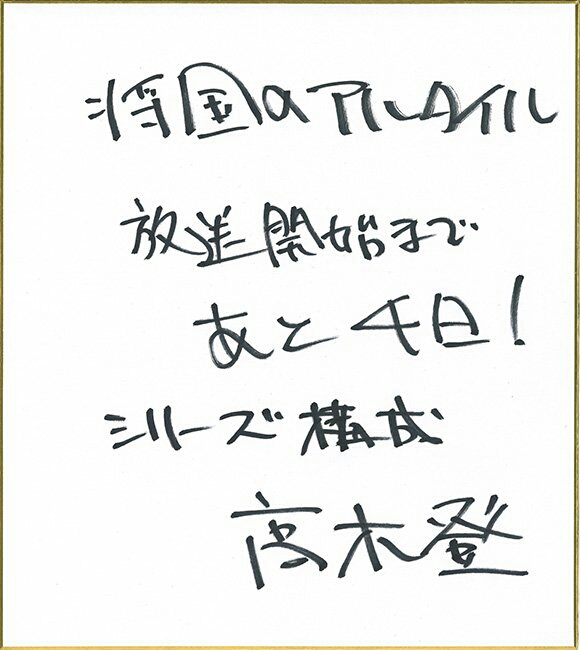 将国のアルタイル
放送開始まで
あと4日!
シリーズ構成
高木登